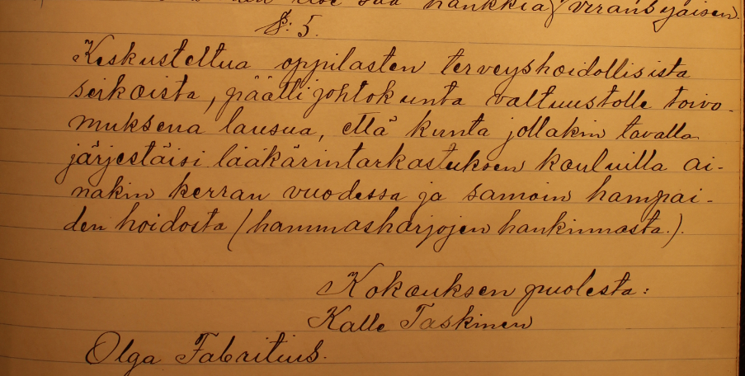 hankkia viransijaisen.
§: 5.
Keskusteltua oppilasten terveyshoidollisista
seikoista, päätti johtokunta valtuustolle toivo-
muksena lausua, että kunta jollakin tavalla
järjestäisi lääkärintarkastuksen kouluilla ai-
nakin kerran vuodessa ja samoin hampai-
den hoidosta (hammasharjojen hankinnasta.).
Kokouksen puolesta:
Kalle Taskinen
Olga Fabritius.